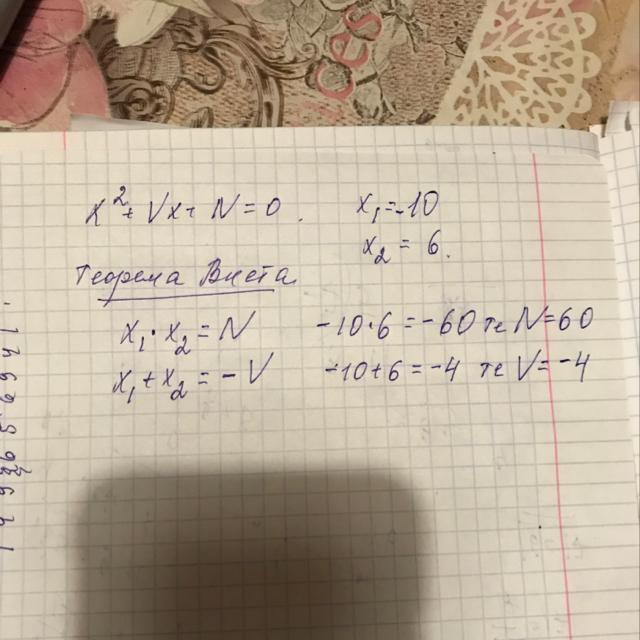 x²+Vx+N=0. x₁=-10
x₂=6.
Теорема Виета
x₁·x₂=N -10·6=-60 те N=60
x₁+x₂=-V -10+6=-4 те V=-4
ces